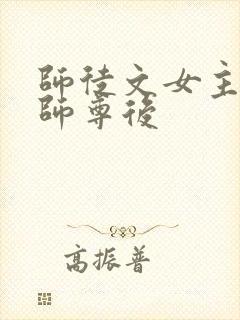 師徒文女主
師尊後
高振普